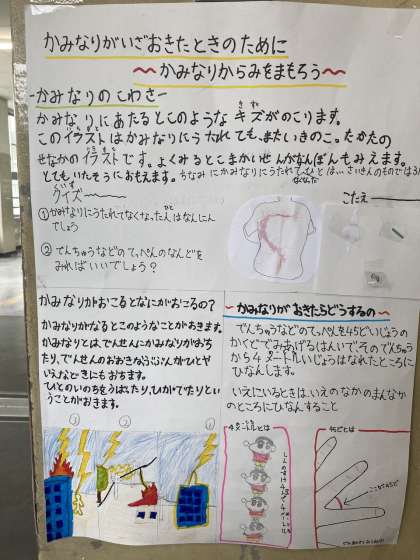 かみなりがいざおきたときのために
〜かみなりからみをまもろう〜
-かみなりのこわさ-
かみなりにあたるとこのようなキズがのこります。
このイラストはかみなりにうたれても、まだいきのこったかたの
せなかのイラストです。よくみるとこまかいせんがなんぼんもみえます。
とてもいたそうにおもえます。ちなみにかみなりにうたれて
クイズ
こたえ
①かみなりにうたれてなくなった人はなんにん
でしょう
②でんちゅうなどのてっぺんのなんどを
みればいいでしょう?
かみなりがおこるとなにがおこるの?
かみなりがなるとこのようなことがおきます。
かみなりとは、でんせんにかみなりがおち
たり、でんせんのおおきな
いえなどきにもおちます。
ひとのいのちをうばったり、ひがでたりとい
うことがおきます。
① ② ③
〜かみなりがおきたらどうするの〜
でんちゅうなどのてっぺんを45どいじょうの
かくどでみあげるはんいで、そのでんちゅう
から4メートルいじょうはなれたところに
ひなんします。
いえにいるときは、いえのなかのまんなか
のところにひなんすること
4メートルとは
45どとは
ここが45ど